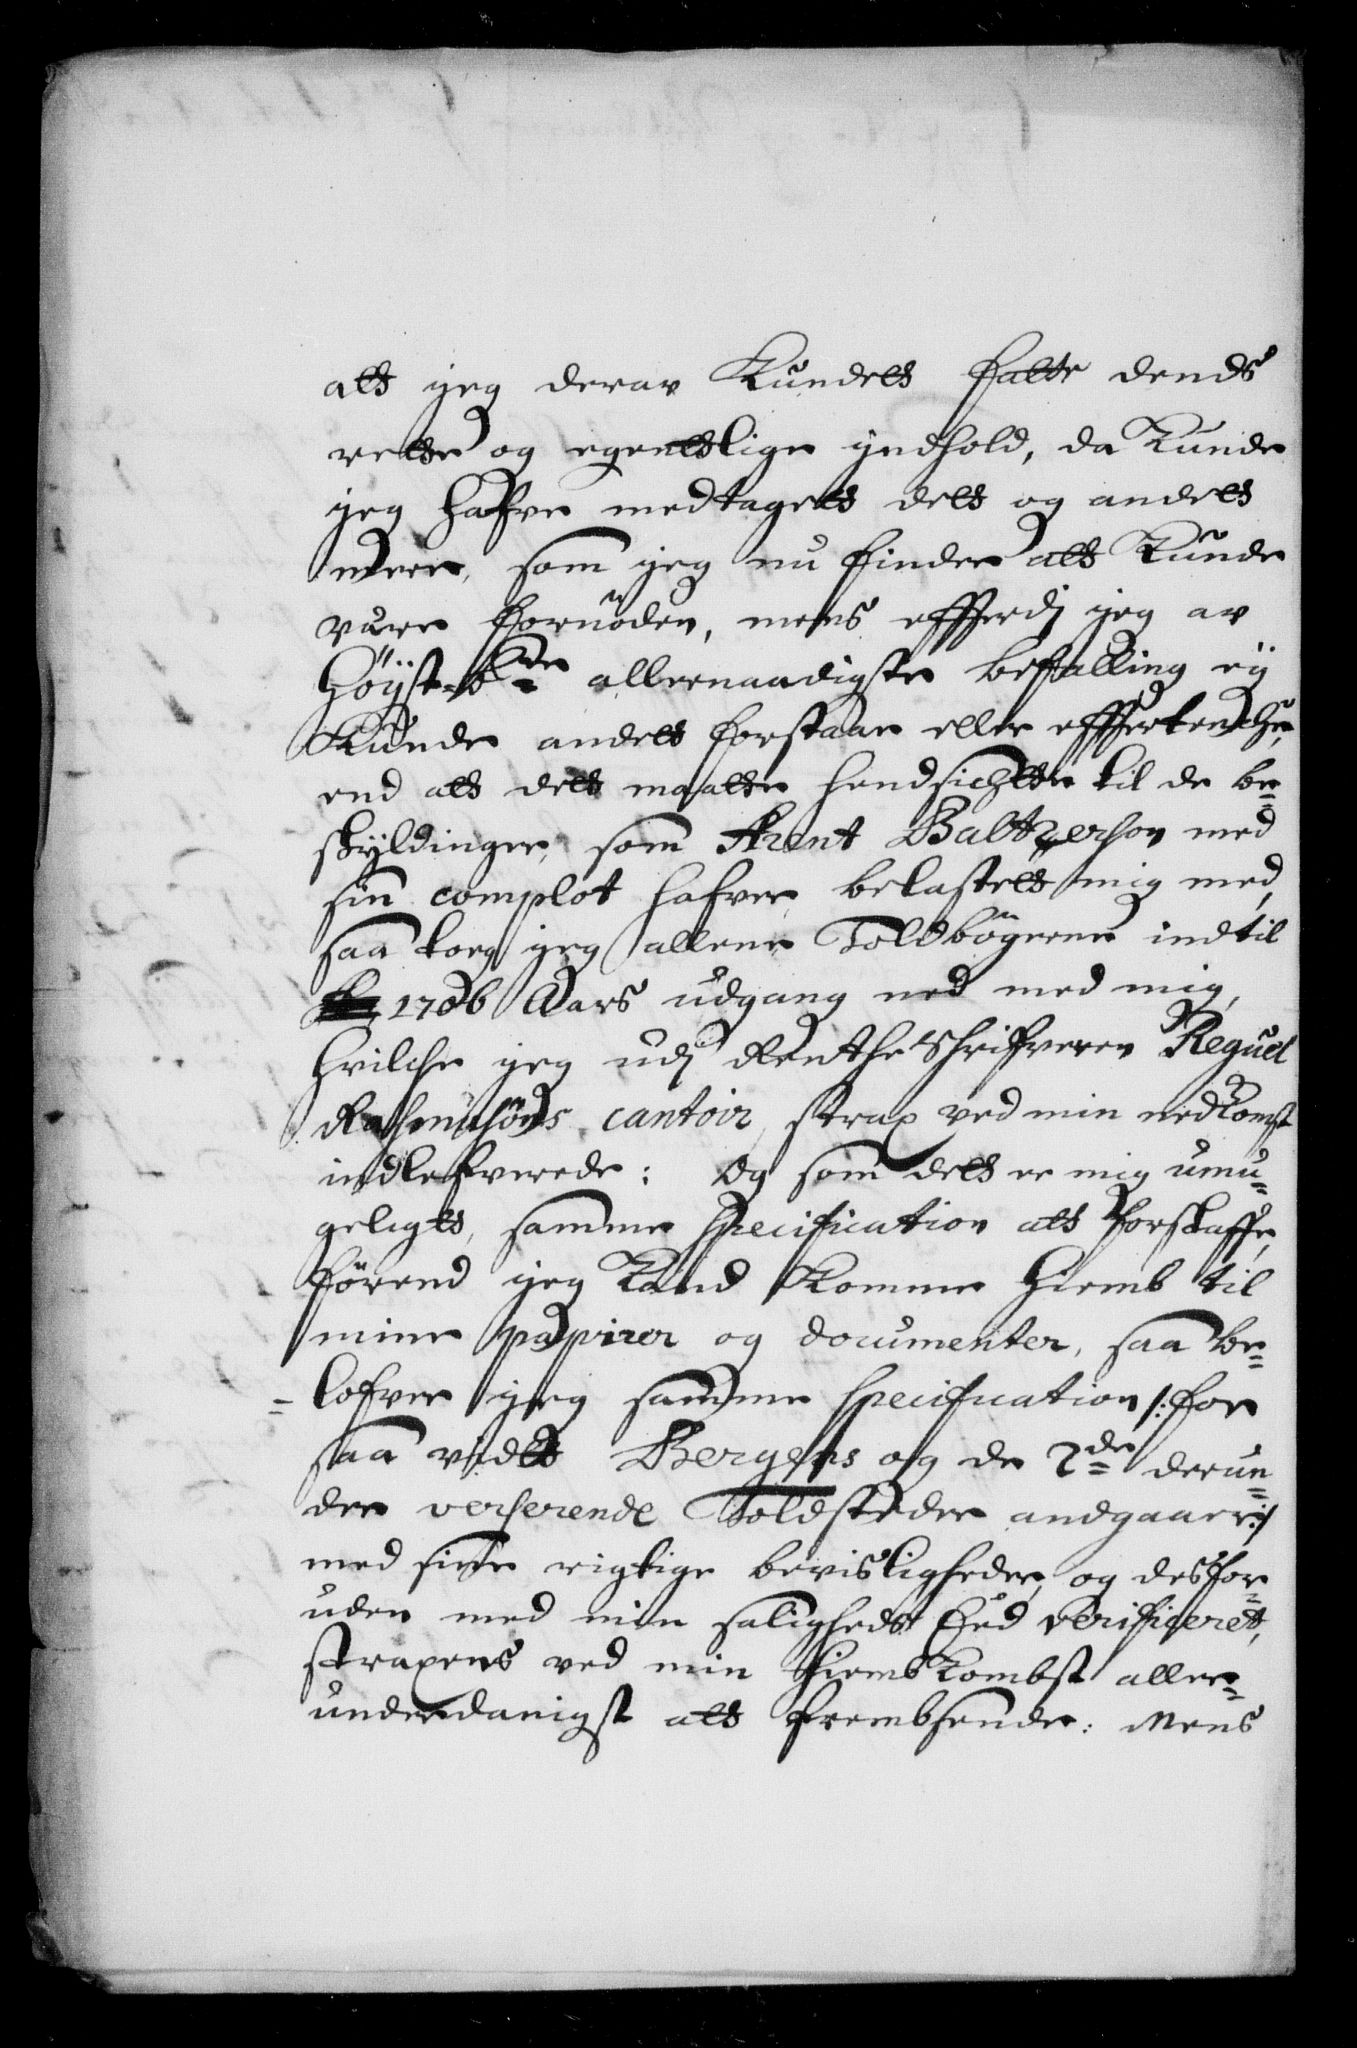 att jeg derav Kundett fatte dends
rette og egenttlige jndhold, da Kunde
jeg hafve medtagett dett og andett
meere, som jeg nu finder att Kunde
være fornöden, mens effterdj jeg av
Höyst-bte allernaadigste befalling ey
Kunde andett forstaae eller effterkomme,
end att dett maatte hensichtte til de be=
skyldinger, som Arent Baltzersøn med
sin complot hafver belastett mig med,
saa toeg jeg allene Toldbögerne indtil
1706 Aars udgang ned med mig,
hvilche jeg udj Rentheschrifveren Reguel
Rasmusöns cantoir, strax ved min nedkomst
indlefverede: Og som dett er mig umu=
geligt, samme specification att forskaffe,
förend jeg Kand Komme hiemb til
mine papirer og documenter, saa be=
lofver jeg samme specification /: for
saa vidtt Bergens og de 2de derun=
der verserende Toldsteder andgaaer :/
med sine rigtige bevisligheder, og desfor=
uden med min saligheds Eed verificeret,
straxens ved min hiembkombst aller=
underdanigst att frembsende: Mens